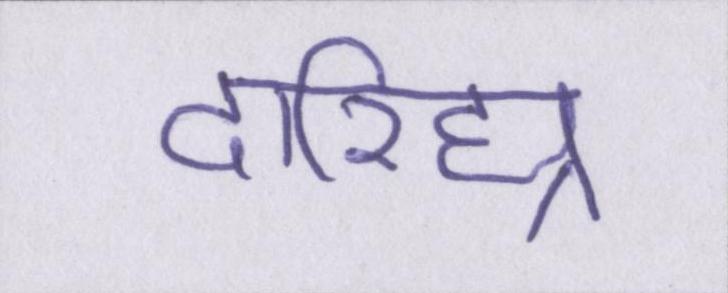 दारिद्य्र